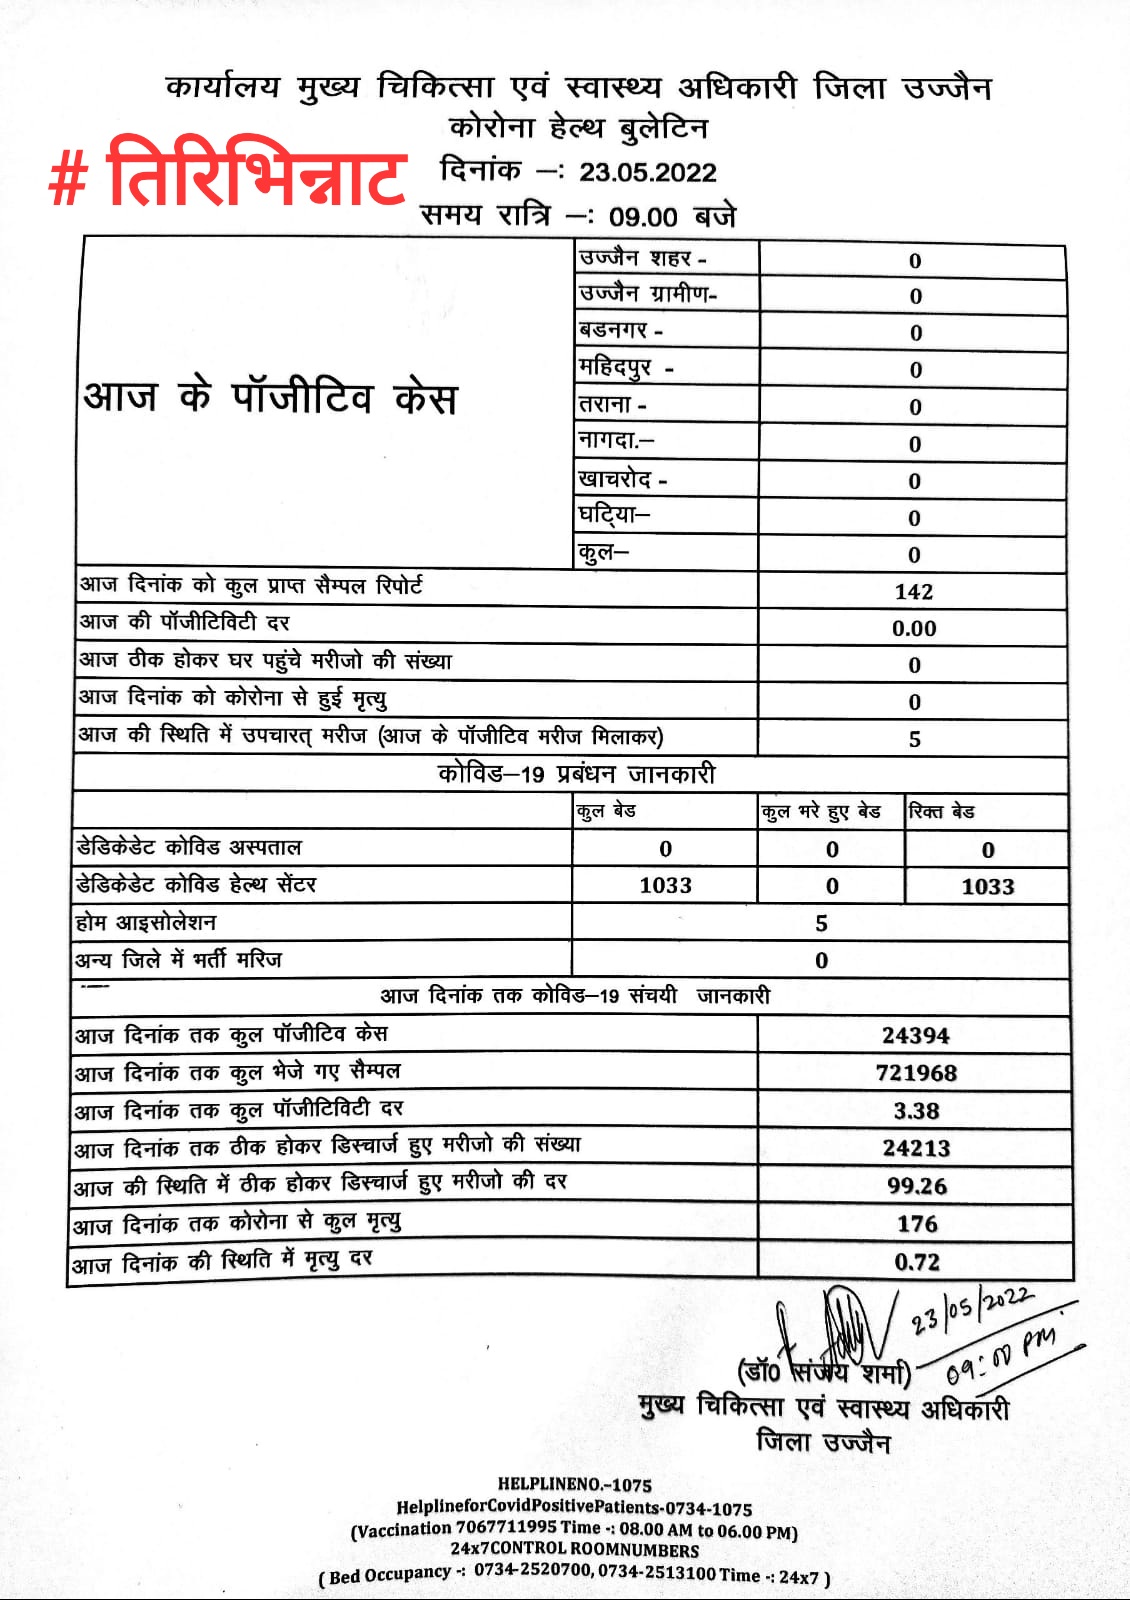 कार्यालय मुख्य चिकित्सा एवं स्वास्थ्य अधिकारी जिला उज्जैन
कोरोना हेल्थ बुलेटिन
# तिरिभिन्नाट
दिनांक –: 23.05.2022
समय रात्रि –: 09.00 बजे
आज के पॉजीटिव केस
उज्जैन शहर - 0
उज्जैन ग्रामीण- 0
बडनगर - 0
महिदपुर - 0
तराना - 0
नागदा.– 0
खाचरोद - 0
घटि्या– 0
कुल– 0
आज दिनांक को कुल प्राप्त सैम्पल रिपोर्ट 142
आज की पॉजीटिविटी दर 0.00
आज ठीक होकर घर पहुंचे मरीजो की संख्या 0
आज दिनांक को कोरोना से हुई मृत्यु 0
आज की स्थिति में उपचारत् मरीज (आज के पॉजीटिव मरीज मिलाकर) 5
कोविड–19 प्रबंधन जानकारी
कुल बेड कुल भरे हुए बेड रिक्त बेड
डेडिकेडेट कोविड अस्पताल 0 0 0
डेडिकेडेट कोविड हेल्थ सेंटर 1033 0 1033
होम आइसोलेशन 5
अन्य जिले में भर्ती मरिज 0
आज दिनांक तक कोविड–19 संचयी जानकारी
आज दिनांक तक कुल पॉजीटिव केस 24394
आज दिनांक तक कुल भेजे गए सैम्पल 721968
आज दिनांक तक कुल पॉजीटिविटी दर 3.38
आज दिनांक तक ठीक होकर डिस्चार्ज हुए मरीजो की संख्या 24213
आज की स्थिति में ठीक होकर डिस्चार्ज हुए मरीजो की दर 99.26
आज दिनांक तक कोरोना से कुल मृत्यु 176
आज दिनांक की स्थिति में मृत्यु दर 0.72
23/05/2022
09:00 PM
(डॉ0 संजय शर्मा)
मुख्य चिकित्सा एवं स्वास्थ्य अधिकारी
जिला उज्जैन
HELPLINENO.-1075
HelplineforCovidPositivePatients-0734-1075
(Vaccination 7067711995 Time -: 08.00 AM to 06.00 PM)
24x7CONTROL ROOMNUMBERS
( Bed Occupancy -: 0734-2520700, 0734-2513100 Time -: 24x7 )